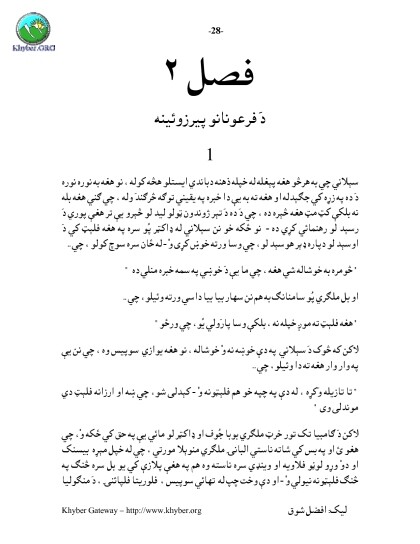 -28-
Khyber.ORG
فصل ۲
دَ فرعونانو پیرزوئینه
1
سبلاني چې به هر څو هغه پېغله له خپله ذهنه دباندې ایستلو هڅه کوله ، نو هغه به نوره نوره
دَ ده په زړه کې جګېدله او هغه ته به یې دا خبره په یقیني توګه څرګنده وله ، چې ګني هغه بله
نه بلکې کټ مټ هغه څېره ده ، چې دَ ده دَ تېر ژوندون ټولو لید لو څېرو یې تر هغې پورې دَ
رسېد لو رهنمائي کړې ده - نو ځکه خو نن سبلاني له ډاکټر یُو سره په هغه فلېټ کې دَ
اوسېد لو دپاره ډېر هوسېد لو ، چې وسا ورته خوښ کړی وُ - له ځان سره سوچ کولو ، چې..
"څومره به خوشاله شي هغه ، چې ما یې دَ خوښې په سمه خبره منلې ده "
او بل ملګري یُو سامنانګ به هم نن سهار بیا بیا دا سې ورته وئیلو ، چې..
"هغه فلېټ ته مو‌ږ خپله نه ، بلکې وسا پارَولي یُو ، چې ورځو "
لاکن که څوک دَ سبلاني په دې خوښه نه وُ خوشاله ، نو هغه یوازې سوپیس وه ، چې نن یې
په وار وار هغه ته دا وئیلو ، چې..
"تا تازیله وکړه ، له دې په چپه خو هم فلېټونه وُ - کېدلی شو ، چې ښه او ارزانه فلېټ دې
موندلی وی "
لاکن دَ ګامبیا تک تور څرټ ملګری بوبا جُوف او ډاکټر لو مائي یې په حق کې ځکه وُ، چې
هغو ئ او په بس کې شاته ناستې البانۍ ملګري منوېلا مورتي ، چې له خپل مېړه بېسنک
او دوُ ورو لوڼو فلاویه او وینډي سره ناسته وه هم په هغې پلازې کې یو بل سره څنګ په
څنګ فلېټونه نیولي وُ - او دې وخت چپ له تهائي سوپیس ، فلورینا فلپائنۍ ، دَ منګولیا
Khyber Gateway – http://www.khyber.org
لیک: افضل شوق